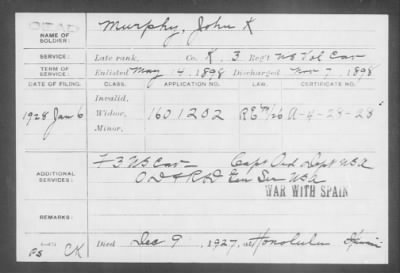 NAME OF SOLDIER: Murphy, John K
SERVICE: Late rank, Co. K, 3 Reg't US Vol Cav
TERM OF SERVICE: Enlisted May 14, 1898 Discharged Nov 7, 1898
DATE OF FILING. CLASS. APPLICATION NO. LAW. CERTIFICATE NO.
Invalid,
1928 Jan 6 Widow, 1601202 A-4-28-28
Minor,
F 3 US Cav Capt Ord Dept USA
ADDITIONAL SERVICES: USA
WAR WITH SPAIN
REMARKS: Died Dec 9, 1927, at Honolulu
PS CK